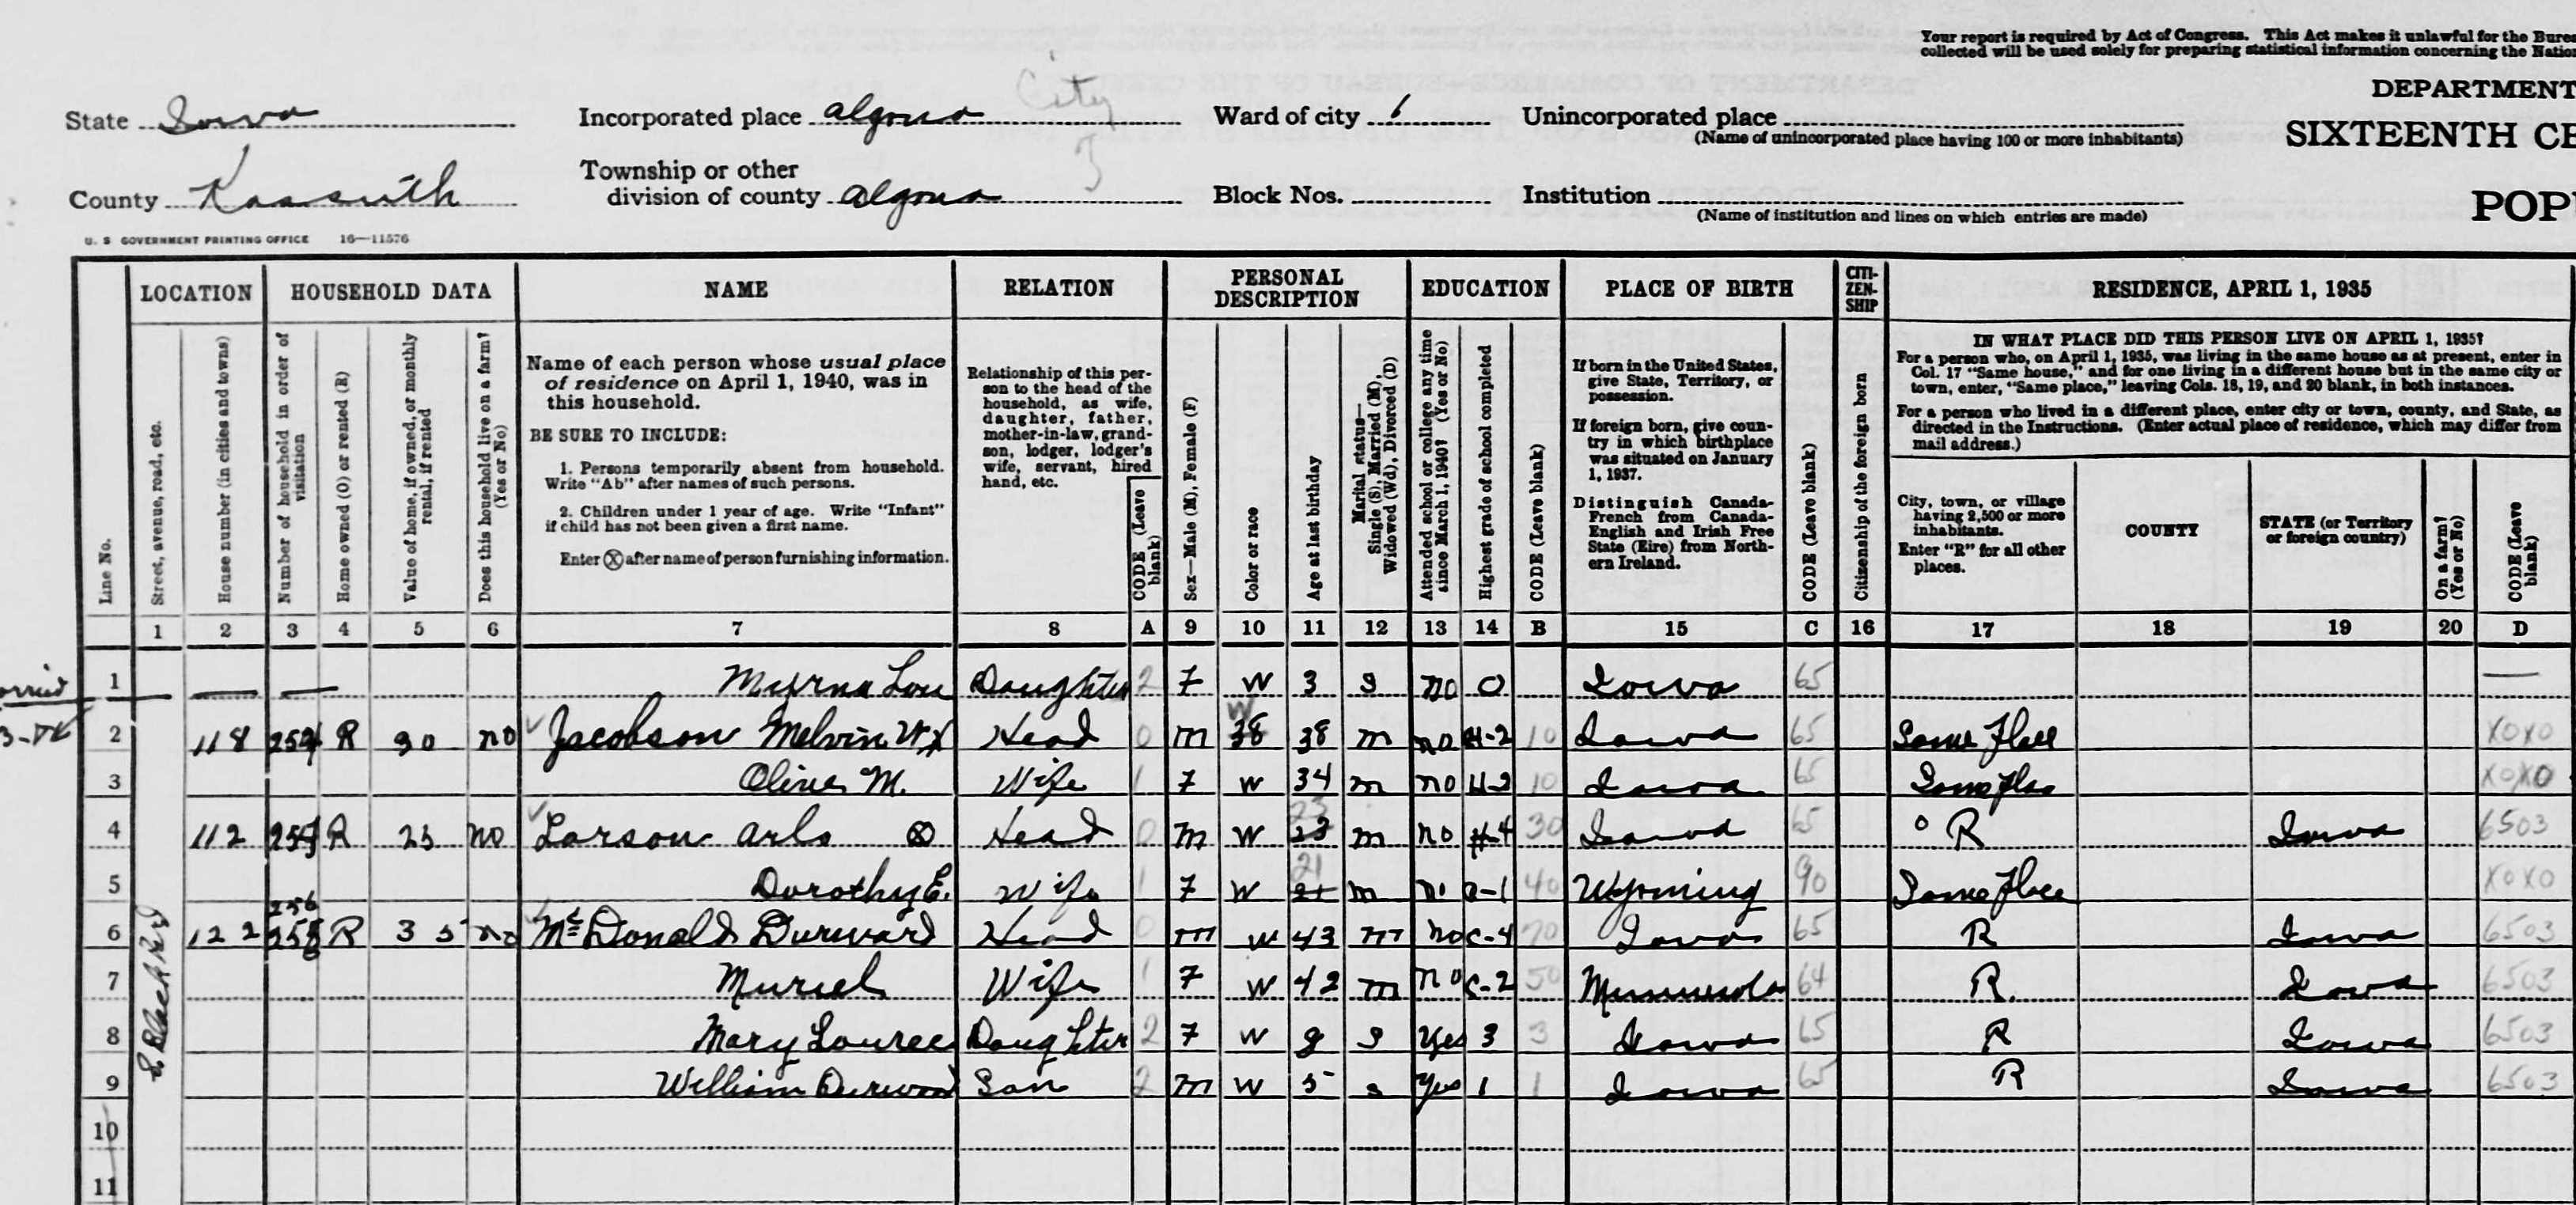 Your report is required by Act of Congress. This Act makes it unlawful for the Bure
collected will be used solely for preparing statistical information concerning the Natio
DEPARTMENT
SIXTEENTH CE
POP
State Iowa Incorporated place Algona City Ward of city 1 Unincorporated place
(Name of unincorporated place having 100 or more inhabitants)
County Kossuth Township or other division of county Algona 3 Block Nos. Institution
(Name of institution and lines on which entries are made)
U. S GOVERNMENT PRINTING OFFICE 16—11576
LOCATION HOUSEHOLD DATA NAME RELATION PERSONAL DESCRIPTION EDUCATION PLACE OF BIRTH CITI-ZEN-SHIP RESIDENCE, APRIL 1, 1935
Line No.
Street, avenue, road, etc.
House number (in cities and towns)
Number of household in order of visitation
Home owned (O) or rented (R)
Value of home, if owned, or monthly rental, if rented
Does this household live on a farm? (Yes or No)
Name of each person whose usual place
of residence on April 1, 1940, was in
this household.
BE SURE TO INCLUDE:
1. Persons temporarily absent from household.
Write "Ab" after names of such persons.
2. Children under 1 year of age. Write "Infant"
if child has not been given a first name.
Enter Ⓧ after name of person furnishing information.
Relationship of this per-
son to the head of the
household, as wife,
daughter, father,
mother-in-law, grand-
son, lodger, lodger's
wife, servant, hired
hand, etc.
CODE (Leave blank)
Sex—Male (M), Female (F)
Color or race
Age at last birthday
Marital status—Single (S), Married (M), Widowed (Wd), Divorced (D)
Attended school or college any time since March 1, 1940? (Yes or No)
Highest grade of school completed
CODE (Leave blank)
If born in the United States,
give State, Territory, or
possession.
If foreign born, give coun-
try in which birthplace
was situated on January
1, 1937.
Distinguish Canada-
French from Canada-
English and Irish Free
State (Eire) from North-
ern Ireland.
CODE (Leave blank)
Citizenship of the foreign born
IN WHAT PLACE DID THIS PERSON LIVE ON APRIL 1, 1935?
For a person who, on April 1, 1935, was living in the same house as at present, enter in
Col. 17 "Same house," and for one living in a different house but in the same city or
town, enter, "Same place," leaving Cols. 18, 19, and 20 blank, in both instances.
For a person who lived in a different place, enter city or town, county, and State, as
directed in the Instructions. (Enter actual place of residence, which may differ from
mail address.)
City, town, or village
having 2,500 or more
inhabitants.
Enter "R" for all other
places.
COUNTY
STATE (or Territory
or foreign country)
On a farm? (Yes or No)
CODE (Leave blank)
1 2 3 4 5 6 7 8 A 9 10 11 12 13 14 B 15 C 16 17 18 19 20 D
1 — — Myrna Lou Daughter 2 F W 3 S no 0 Iowa 65 —
2 118 254 R 30 no Jacobson Melvin W X Head 0 M W 38 38 M no H-2 10 Iowa 65 Same Place X0X0
3 Olive M. Wife 1 F W 34 M no H-2 10 Iowa 65 Same Place X0X0
4 112 255 R 25 no Larson Arlo Ⓧ Head 0 M W 23 M no H-4 30 Iowa 65 R Iowa 6503
5 Dorothy E. Wife 1 F W 21 M no C-1 40 Wyoming 90 Same Place X0X0
6 122 256 R 35 no McDonald Durward Head 0 M W 43 M no C-4 70 Iowa 65 R Iowa 6503
7 Muriel Wife 1 F W 42 M no C-2 50 Minnesota 64 R. Iowa 6503
8 Mary Louree Daughter 2 F W 9 S Yes 3 3 Iowa 65 R Iowa 6503
9 William Durwood Son 2 M W 5 S Yes 1 1 Iowa 65 R Iowa 6503
10
11